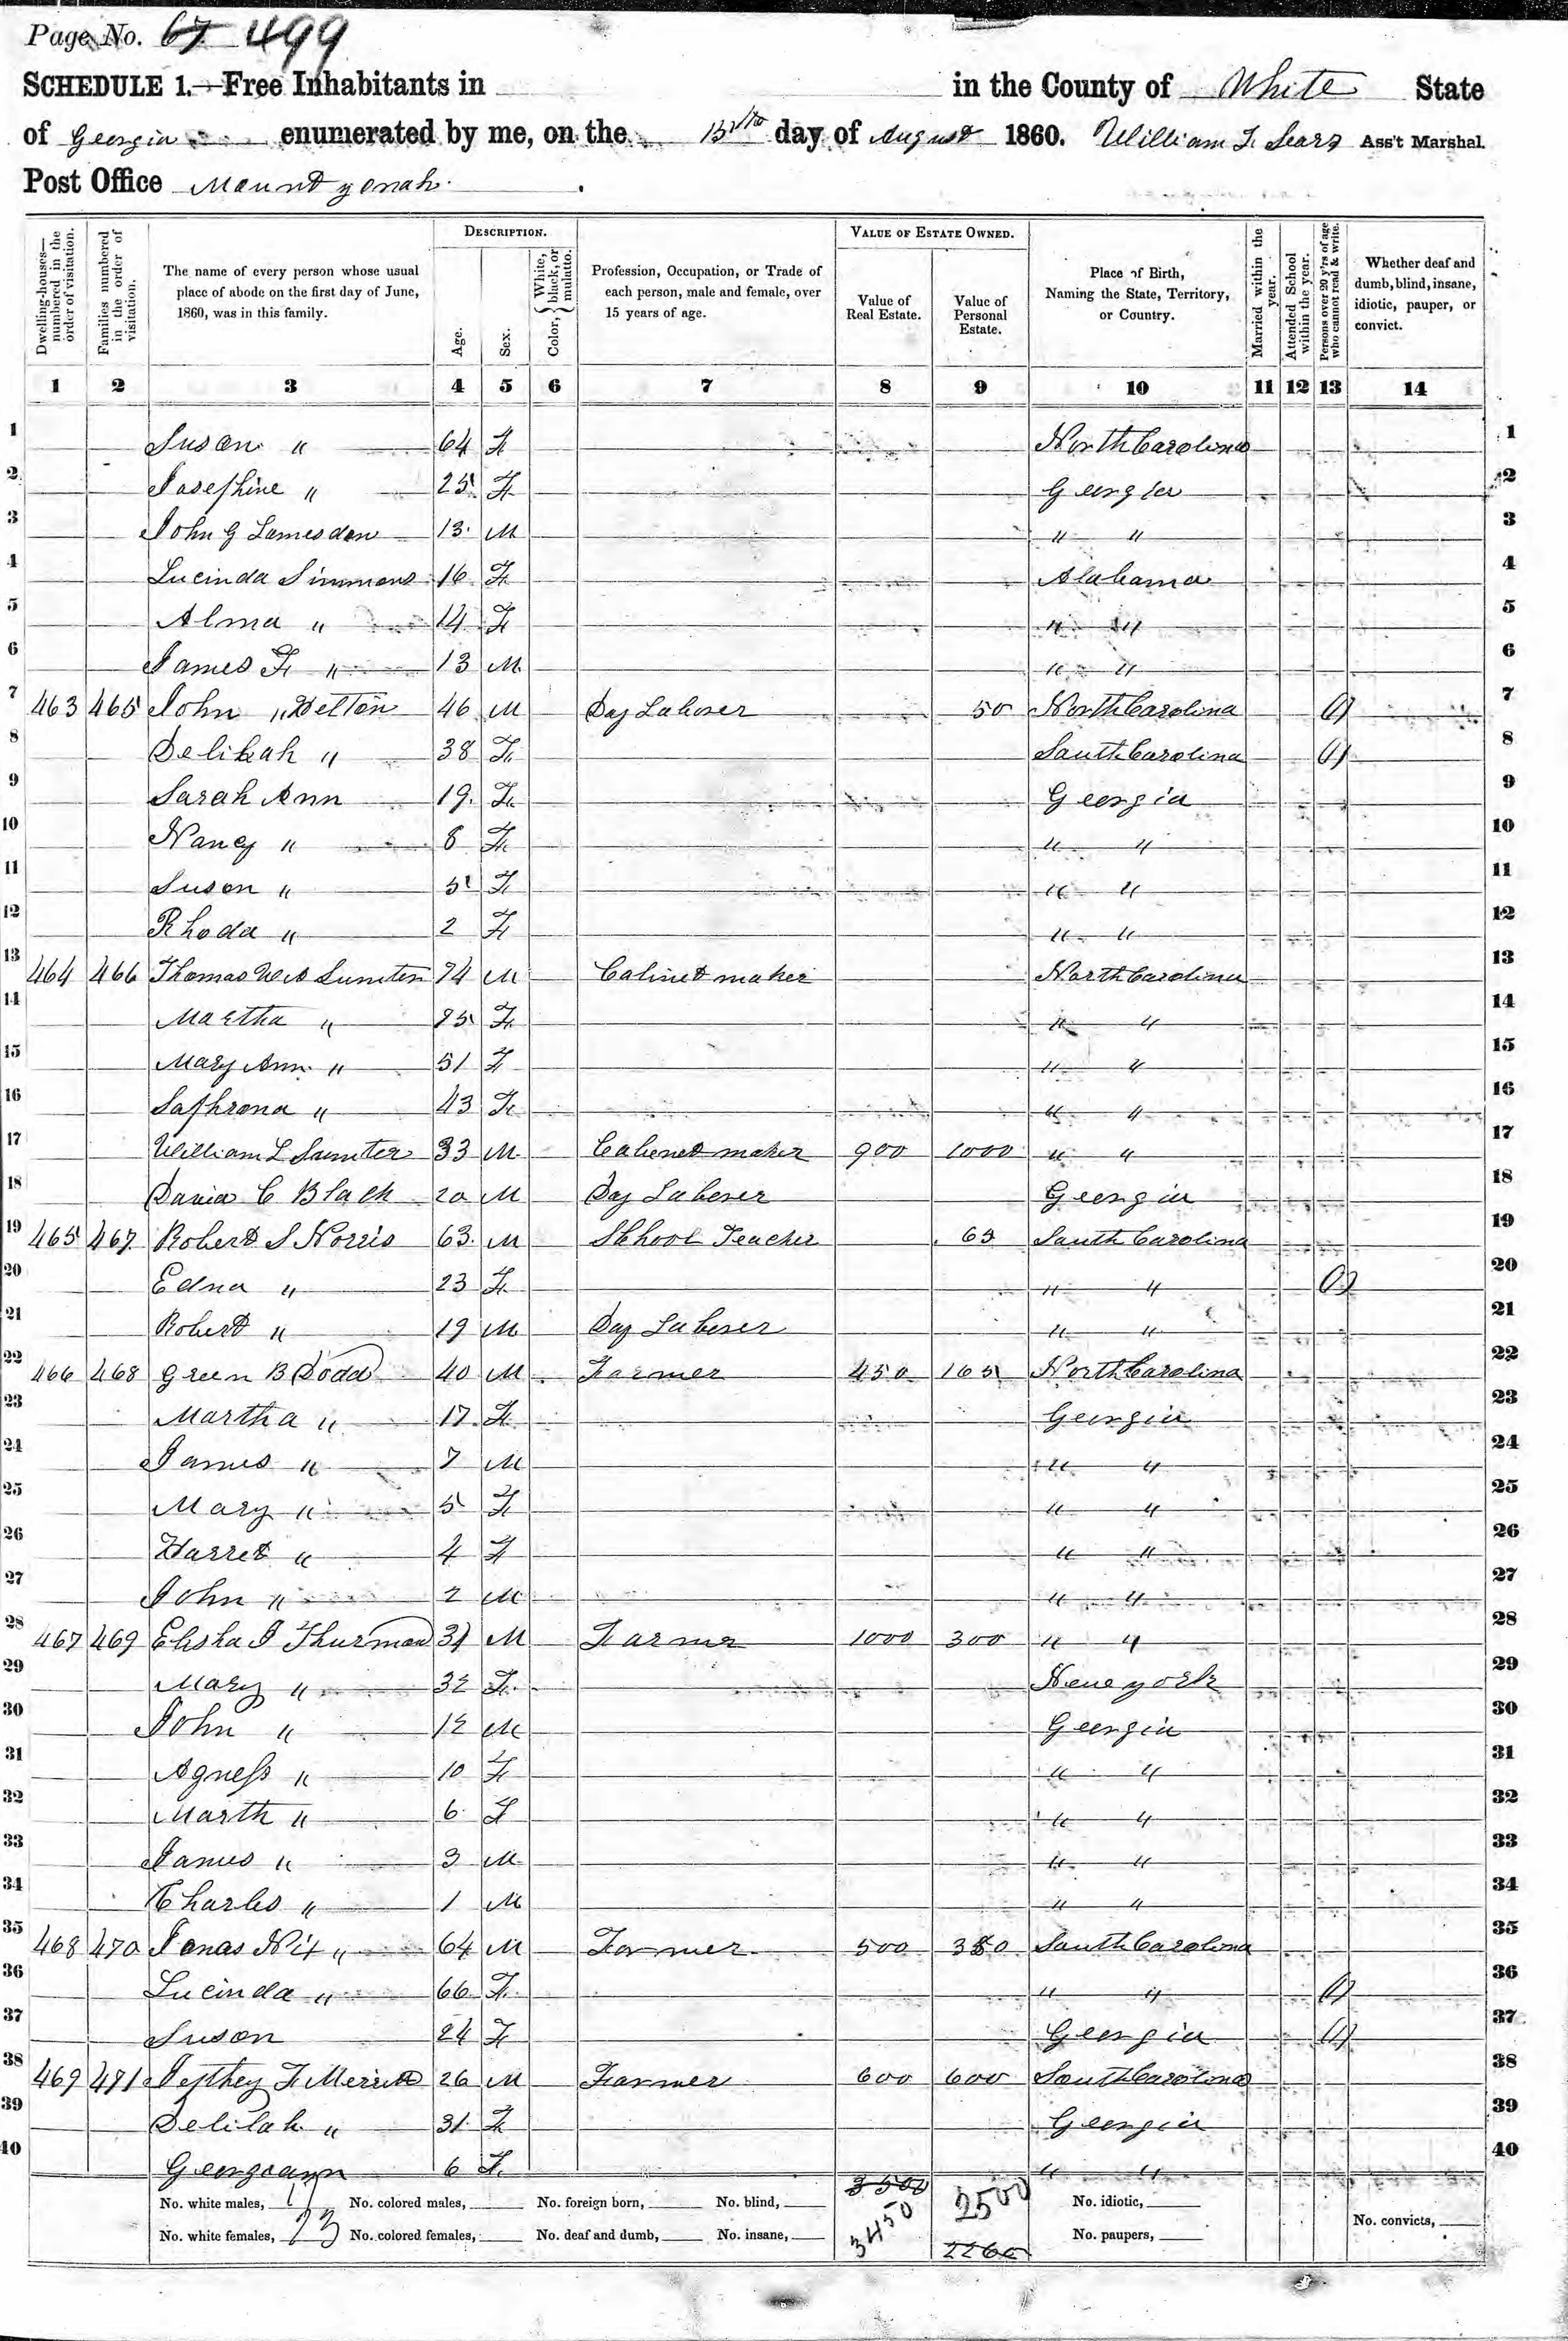 Page No. 67 499
SCHEDULE 1.—Free Inhabitants in in the County of White State
of Georgia enumerated by me, on the 15th day of August 1860. William F. Sears Ass't Marshal.
Post Office Mount yonah.
Dwelling-houses—numbered in the order of visitation.
Families numbered in the order of visitation.
The name of every person whose usual place of abode on the first day of June, 1860, was in this family.
DESCRIPTION.
Age.
Sex.
Color, { White, black, or mulatto.
Profession, Occupation, or Trade of each person, male and female, over 15 years of age.
VALUE OF ESTATE OWNED.
Value of Real Estate.
Value of Personal Estate.
Place of Birth, Naming the State, Territory, or Country.
Married within the year.
Attended School within the year.
Persons over 20 y'rs of age who cannot read & write.
Whether deaf and dumb, blind, insane, idiotic, pauper, or convict.
1 2 3 4 5 6 7 8 9 10 11 12 13 14
1 Susan " 64 F North Carolina 1
2 Josephine " 25 F Georgia 2
3 John G Lamesdon 13 M " " 3
4 Lucinda Simmons 16 F Alabama 4
5 Alma " 14 F " " 5
6 James F " 13 M " " 6
7 463 465 John " Helton 46 M Day Laborer 50 North Carolina (1) 7
8 Delilah " 38 F South Carolina (1) 8
9 Sarah Ann 19 F Georgia 9
10 Nancy " 8 F " " 10
11 Suson " 5 F " " 11
12 Rhoda " 2 F " " 12
13 464 466 Thomas Sumter 74 M Cabinet maker North Carolina 13
14 Martha " F " " 14
15 Mary Ann " 51 F " " 15
16 Saphrona " 43 F " " 16
17 William L Sumter 33 M Cabenet maker 900 1000 " " 17
18 David C Black 20 M Day Laberer Georgia 18
19 465 467 Robert S Norris 63 M School Teacher South Carolina 19
20 Edna " 23 F " " (1) 20
21 Robert " 19 M Day Laberer " " 21
22 466 468 Green B Dodd 40 M Farmer 450 165 North Carolina 22
23 Martha " 17 F Georgia 23
24 James " 7 M " " 24
25 Mary " 5 F " " 25
26 Harret " 4 F " " 26
27 John " 2 M " " 27
28 467 469 Elisha J Thurmond 31 M Farmer 1000 300 " " 28
29 Mary " 32 F New york 29
30 John " 12 M Georgia 30
31 Agness " 10 F " " 31
32 Marth " 6 F " " 32
33 James " 3 M " " 33
34 Charles " 1 M " " 34
35 468 470 Jonas Nix " 64 M Farmer 500 South Carolina 35
36 Lucinda " 66 F " " (1) 36
37 Suson 24 F Georgia (1) 37
38 469 471 F Merritt 26 M Farmer 600 600 South Carolina 38
39 Delilah " 31 F Georgia 39
40 Georgeann 6 F " " 40
No. white males, 17 No. colored males, No. foreign born, No. blind, 3500 2500 No. idiotic,
No. white females, 23 No. colored females, No. deaf and dumb, No. insane, 3450 2260 No. paupers, No. convicts,